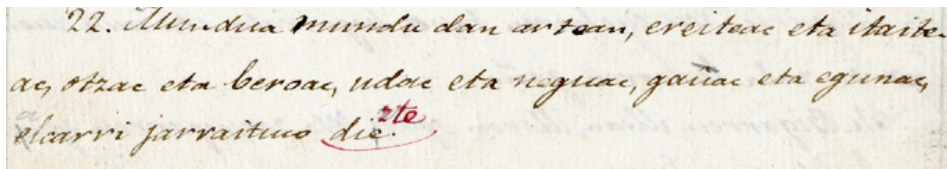 22. Mundua mundu dan artean, ereiteac eta itaite-
ac, otzac eta beroac, udac eta neguac, gauac eta egunac,
elcarri jarraituco die. zte